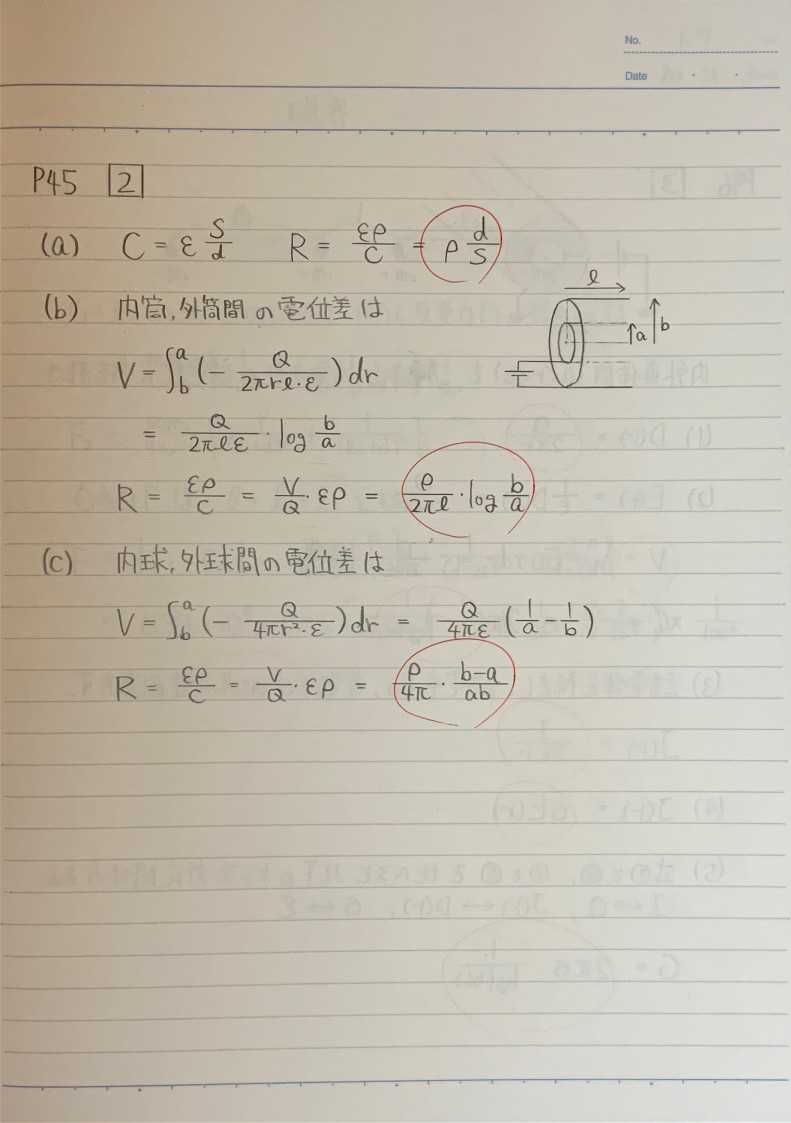 No.
Date
P45 [2]
(a) C = ε S/d R = ερ/C = ρ d/S
(b) 内筒,外筒間の電位差は
l
a b
V = ∫_b^a (- Q/(2πrl·ε)) dr
= Q/(2πlε) · log b/a
R = ερ/C = V/Q · ερ = ρ/(2πl) · log b/a
(c) 内球,外球間の電位差は
V = ∫_b^a (- Q/(4πr²·ε)) dr = Q/(4πε) (1/a - 1/b)
R = ερ/C = V/Q · ερ = ρ/4π · (b-a)/ab